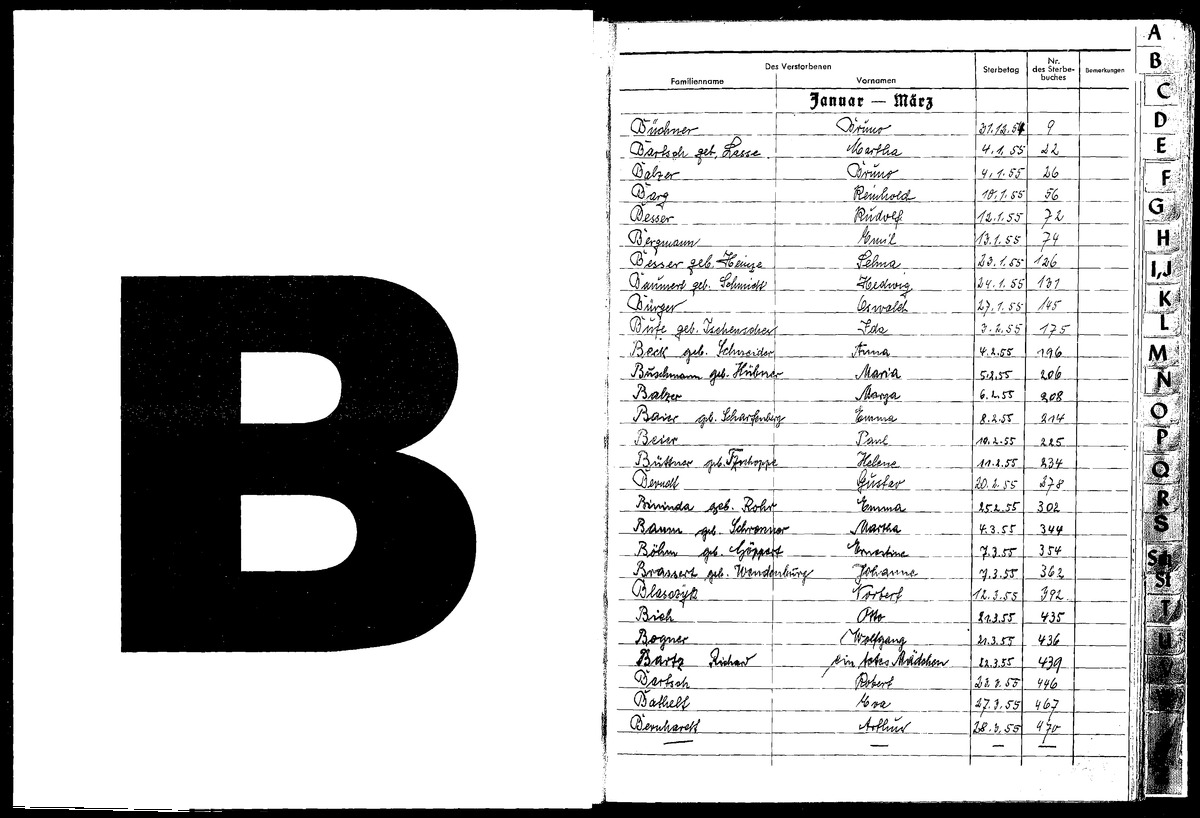 B
Des Verstorbenen
Familienname Vornamen Sterbetag Nr. des Sterbebuches Bemerkungen
Januar — März
Büchner Bruno 31.12.54 9
Bartsch geb. Lasse Martha 4.1.55 22
Balzer Bruno 4.1.55 26
Barg Reinhold 10.1.55 56
Besser Rudolf 12.1.55 72
Bergmann Emil 13.1.55 74
Besser geb. Heinze Selma 23.1.55 126
Baumert geb. Schmidt Hedwig 24.1.55 131
Bürger Oswald 27.1.55 145
Bufe geb. Tschenscher Ida 3.2.55 175
Beck geb. Schneider Anna 4.2.55 196
Buschmann geb. Hübner Maria 5.2.55 206
Balzer Marga 6.2.55 208
Baier geb. Scharfenberg Emma 8.2.55 214
Beier Paul 10.2.55 225
Büttner geb. Helene 11.2.55 234
Berndt Gustav 20.2.55 278
Bininda geb. Rohr Emma 25.2.55 302
Baum geb. Martha 4.3.55 344
Böhm geb. Göppert Ernestine 7.3.55 354
Brassert geb. Wendenburg Johanne 7.3.55 362
Blasczyk Norbert 12.3.55 392
Bich Otto 21.3.55 435
Bogner Wolfgang 21.3.55 436
Bartz Richard ein totes Mädchen 22.3.55 439
Bartsch Robert 22.3.55 446
Bathelt Eva 27.3.55 467
Bernhardt Arthur 28.3.55 470
A
B
C
D
E
F
G
H
I,J
K
L
M
N
O
P
Q
R
S
Sch
St
T
U
V